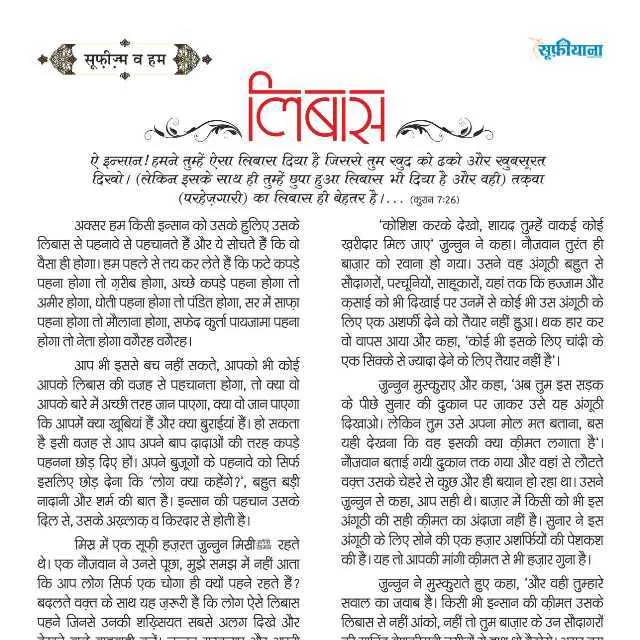 सूफ़ीज़्म व हम
सूफ़ीयाना
लिबास
ऐ इन्सान! हमने तुम्हें ऐसा लिबास दिया है जिससे तुम खुद को ढको और खुबसूरत
दिखो। (लेकिन इसके साथ ही तुम्हें छुपा हुआ लिबास भी दिया है और वही) तक़वा
(परहेज़गारी) का लिबास ही बेहतर है।... (कुरान 7:26)
अक्सर हम किसी इन्सान को उसके हुलिए उसके
लिबास से पहनावे से पहचानते हैं और ये सोचते हैं कि वो
वैसा ही होगा। हम पहले से तय कर लेते हैं कि फटे कपड़े
पहना होगा तो ग़रीब होगा, अच्छे कपड़े पहना होगा तो
अमीर होगा, धोती पहना होगा तो पंडित होगा, सर में साफ़ा
पहना होगा तो मौलाना होगा, सफेद कुर्ता पायजामा पहना
होगा तो नेता होगा वगैरह वगैरह।
आप भी इससे बच नहीं सकते, आपको भी कोई
आपके लिबास की वजह से पहचानता होगा, तो क्या वो
आपके बारे में अच्छी तरह जान पाएगा, क्या वो जान पाएगा
कि आपमें क्या खूबियां हैं और क्या बुराईयां हैं। हो सकता
है इसी वजह से आप अपने बाप दादाओं की तरह कपड़े
पहनना छोड़ दिए हों। अपने बुज़ूगों के पहनावे को सिर्फ
इसलिए छोड़ देना कि ‘लोग क्या कहेंगे?’, बहुत बड़ी
नादानी और शर्म की बात है। इन्सान की पहचान उसके
दिल से, उसके अख़्लाक़ व किरदार से होती है।
मिस्र में एक सूफ़ी हज़रत ज़ुन्नुन मिस्री रहते
थे। एक नौजवान ने उनसे पूछा, मुझे समझ में नहीं आता
कि आप लोग सिर्फ एक चोगा ही क्यों पहने रहते हैं?
बदलते वक़्त के साथ यह ज़रूरी है कि लोग ऐसे लिबास
पहने जिनसे उनकी शख़्सियत सबसे अलग दिखे और
‘कोशिश करके देखो, शायद तुम्हें वाकई कोई
ख़रीदार मिल जाए’ ज़ुन्नुन ने कहा। नौजवान तुरंत ही
बाज़ार को रवाना हो गया। उसने वह अंगूठी बहुत से
सौदागरों, परचूनियों, साहूकारों, यहां तक कि हज्जाम और
क़साई को भी दिखाई पर उनमें से कोई भी उस अंगूठी के
लिए एक अशर्फी देने को तैयार नहीं हुआ। थक हार कर
वो वापस आया और कहा, ‘कोई भी इसके लिए चांदी के
एक सिक्के से ज्यादा देने के लिए तैयार नहीं है’।
ज़ुन्नुन मुस्कुराए और कहा, ‘अब तुम इस सड़क
के पीछे सुनार की दुकान पर जाकर उसे यह अंगूठी
दिखाओ। लेकिन तुम उसे अपना मोल मत बताना, बस
यही देखना कि वह इसकी क्या क़ीमत लगाता है’।
नौजवान बताई गयी दुकान तक गया और वहां से लौटते
वक़्त उसके चेहरे से कुछ और ही बयान हो रहा था। उसने
ज़ुन्नुन से कहा, आप सही थे। बाज़ार में किसी को भी इस
अंगूठी की सही क़ीमत का अंदाजा नहीं है। सुनार ने इस
अंगूठी के लिए सोने की एक हज़ार अशर्फियों की पेशकश
की है। यह तो आपकी मांगी क़ीमत से भी हज़ार गुना है।
ज़ुन्नुन ने मुस्कुराते हुए कहा, ‘और वही तुम्हारे
सवाल का जवाब है। किसी भी इन्सान की क़ीमत उसके
लिबास से नहीं आंको, नहीं तो तुम बाज़ार के उन सौदागरों